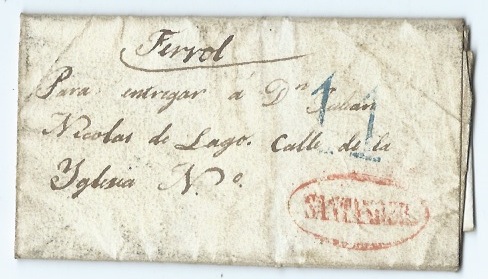 Ferrol
Para entregar á Dn Julián
Nicolas de Lago. Calle de la
Yglesia N.o
11